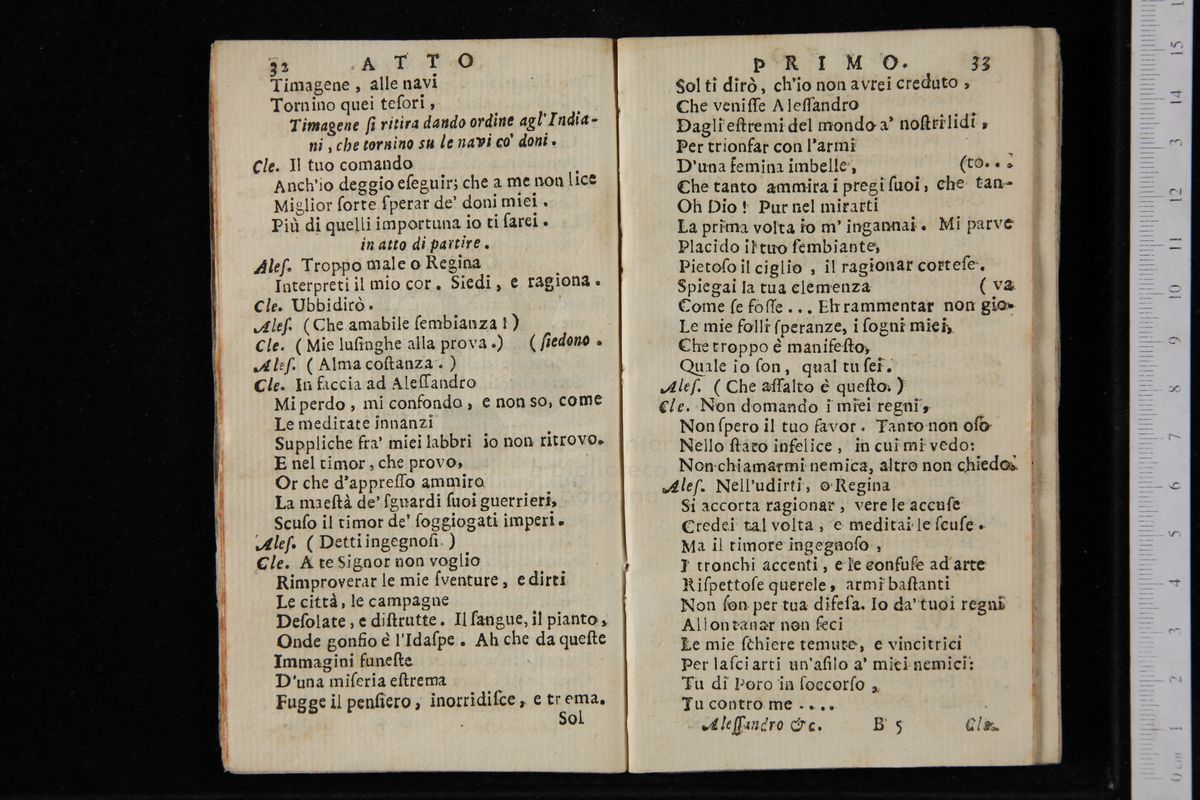 32 A T T O
Timagene, alle navi
Tornino quei teſori,
Timagene ſi ritira dando ordine agl'India-
ni, che tornino su le navi co' doni.
Cle. Il tuo comando
Anch'io deggio eſeguir; che a me non lice
Miglior ſorte ſperar de' doni miei.
Più di quelli importuna io ti ſarei.
in atto di partire.
Aleſ. Troppo male o Regina
Interpreti il mio cor. Siedi, e ragiona.
Cle. Ubbidirò.
Aleſ. (Che amabile ſembianza!)
Cle. (Mie luſinghe alla prova.) (ſiedono.
Aleſ. (Alma coſtanza.)
Cle. In faccia ad Aleſſandro
Mi perdo, mi confondo, e non so, come
Le meditate innanzi
Suppliche fra' miei labbri io non ritrovo.
E nel timor, che provo,
Or che d'appreſſo ammiro
La maeſtà de' ſguardi ſuoi guerrieri,
Scuſo il timor de' ſoggiogati imperi.
Aleſ. (Detti ingegnoſi.)
Cle. A te Signor non voglio
Rimproverar le mie ſventure, e dirti
Le città, le campagne
Deſolate, e diſtrutte. Il ſangue, il pianto,
Onde gonfio è l'Idaſpe. Ah che da queſte
Immagini funeſte
D'una miſeria eſtrema
Fugge il penſiero, inorridiſce, e trema.
Sol
P R I M O. 33
Sol ti dirò, ch'io non avrei creduto,
Che veniſſe Aleſſandro
Dagli eſtremi del mondo a' noſtri lidi,
Per trionfar con l'armi
D'una femina imbelle, (to...
Che tanto ammira i pregi ſuoi, che tan-
Oh Dio! Pur nel mirarti
La prima volta io m' ingannai. Mi parve
Placido il tuo ſembiante,
Pietoſo il ciglio, il ragionar corteſe.
Spiegai la tua clemenza (va
Come ſe foſſe... Eh rammentar non gio-
Le mie folli ſperanze, i ſogni miei,
Che troppo è manifeſto,
Quale io ſon, qual tu ſei.
Aleſ. (Che aſſalto è queſto.)
Cle. Non domando i miei regni,
Non ſpero il tuo favor. Tanto non oſo
Nello ſtato infelice, in cui mi vedo:
Non chiamarmi nemica, altro non chiedo.
Aleſ. Nell'udirti, o Regina
Si accorta ragionar, vere le accuſe
Credei tal volta, e meditai le ſcuſe.
Ma il timore ingegnoſo,
I tronchi accenti, e le confuſe ad arte
Riſpettoſe querele, armi baſtanti
Non ſon per tua difeſa. Io da' tuoi regni
Allontanar non feci
Le mie ſchiere temute, e vincitrici
Per laſciarti un'aſilo a' miei nemici:
Tu di Poro in ſoccorſo,
Tu contro me....
Aleſſandro &c. B 5 Cle.